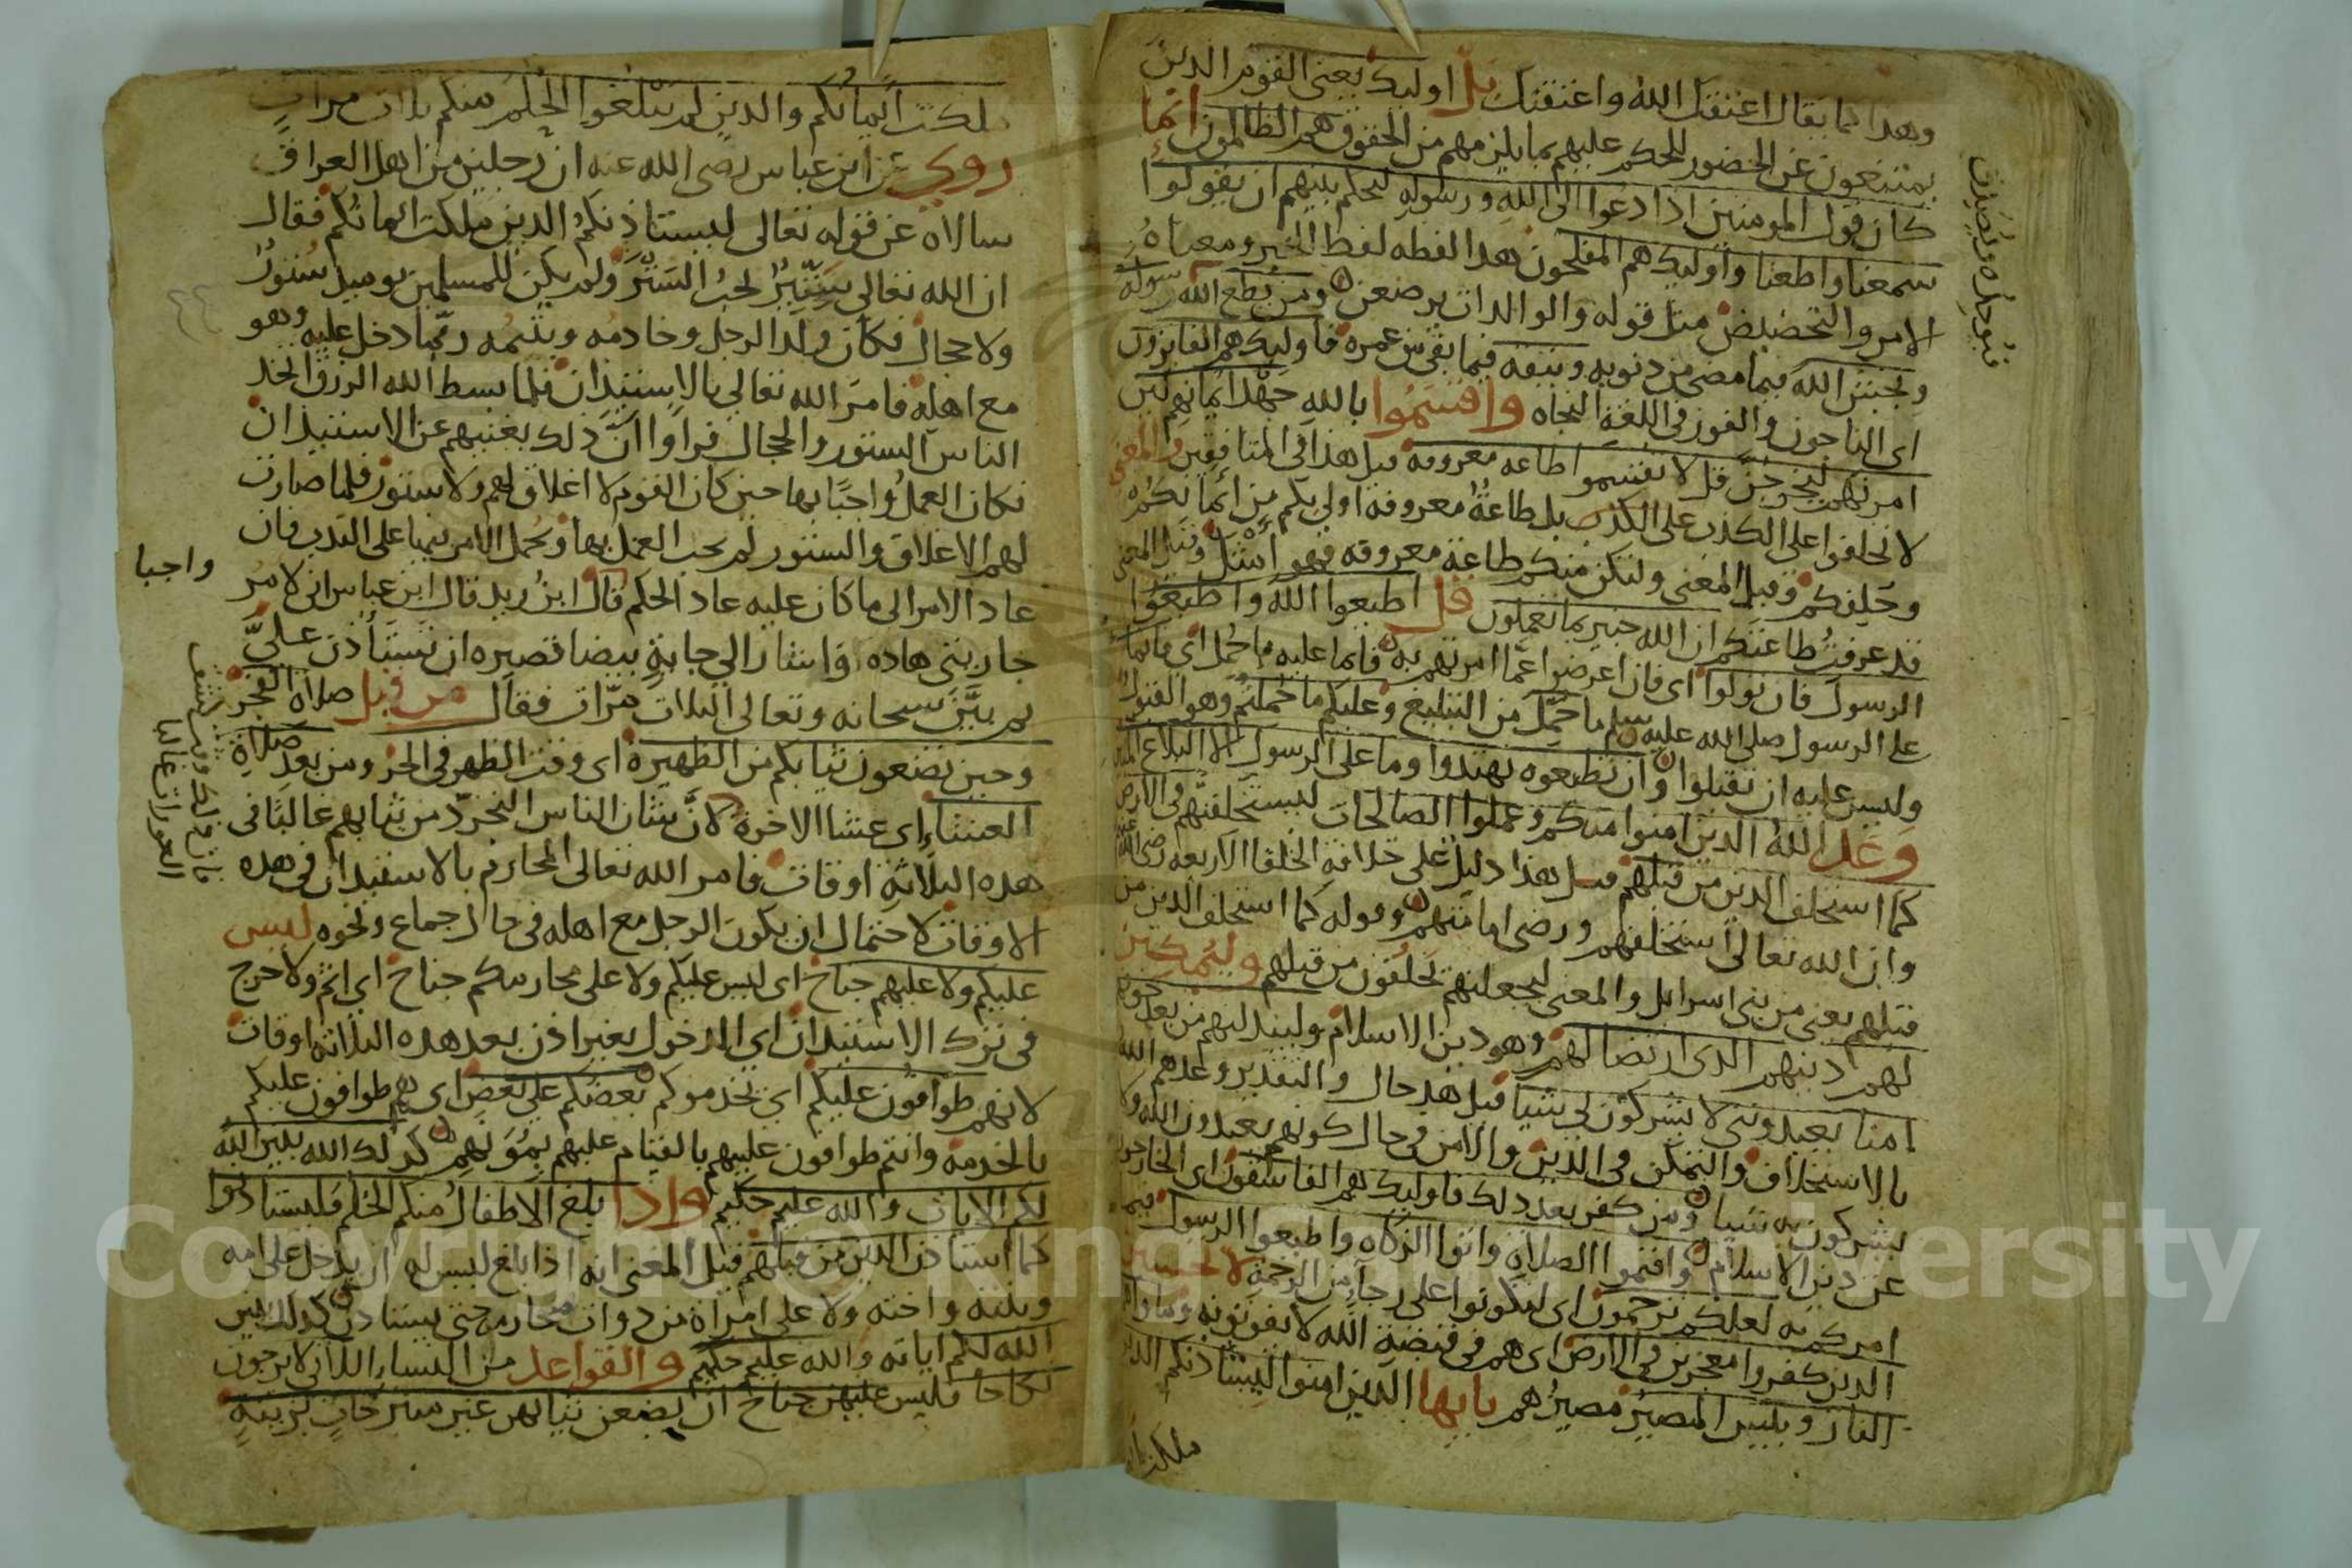 وهدا كما يقال اعتقك الله واعتقتك بل اوليك يعني القوم الدين
يمتنعون عن الحضور للحكم عليهم بما يلزمهم من الحقوق هم الظالمون انما
كان قول المومنين ادا دعوا الى الله ورسوله ليحكم بينهم ان يقولوا
سمعنا واطعنا واوليك هم المفلحون هدا لفظه لفظ الخبر ومعناه
الامر والتحضيض مثل قوله والوالدات يرضعن ومن يطع الله ورسوله
ويخشى الله فيما مضى من دنوبه ويتقه فيما بقي من عمره فاوليك هم الفايزون
اى الناجون والفوز في اللغة النجاه واقسموا بالله جهد ايمانهم لين
امرتهم ليخرجن قل لا تقسموا طاعه معروفه قيل هذا في المنافقين والمعنى
لا تحلفوا على الكذب بل طاعة معروفة اولى بكم من ايمانكم
وحلفكم وقيل المعنى ولتكن منكم طاعة معروفه فهو امثل وقيل المعنى
قد عرفت طاعتكم ان الله خبير بما تعملون قل اطيعوا الله واطيعوا
الرسول فان تولوا اى فان اعرضوا عما امرتهم به فانما عليه ما حمل اى فانما
على الرسول صلى الله عليه وسلم ما حمل من التبليغ وعليكم ما حملتم وهو القبول
وليس عليه ان تقبلوا وان تطيعوه تهتدوا وما على الرسول الا البلاغ المبين
وعد الله الدين امنوا منكم وعملوا الصالحات ليستخلفنهم في الارض
كما استخلف الدين من قبلهم قيل هذا دليل على خلافة الخلفا الاربعه رضى الله عنهم
وان الله تعالى استخلفهم ورضى امامتهم وقوله كما استخلف الدين من
قبلهم يعني من بني اسرايل والمعنى ليجعلنهم يخلفون من قبلهم وليمكنن
لهم دينهم الدى ارتضا لهم وهو دين الاسلام وليبدلنهم من بعد خوفهم
امنا يعبدونني لا يشركون بي شيا قيل هد حال والتقدير وعدهم الله
بالاستخلاف والتمكن في الدين والامن في حال كونهم يعبدون الله ولا
يشركون به شيا ومن كفر بعد دلك فاوليك هم الفاسقون اى الخارجون
عن دين الاسلام واقيموا الصلاة واتوا الزكاه واطيعوا الرسول فيما
امركم به لعلكم ترحمون اى لتكونوا على رجآء من الرحمة لا تحسبن
الدين كفروا معجزين في الارض اى هم في قبضة الله لا يفوتونه وماواهم
النار وبليس المصير مصيرهم يايها الدين امنوا ليستادنكم الدين
ملكت
ملكت ايمانكم والدين لم يبلغوا الحلم منكم ثلاث مرات
روي عن ابن عباس رضى الله عنه ان رجلين من اهل العراق
سالاه عن قوله تعالى ليستاذنكم الدين ملكت ايمانكم فقال
ان الله تعالى ستير يحب الستر ولم يكن للمسلمين يوميد ستور
ولا حجال فكان ولد الرجل وخادمه ويتيمه ربما دخل عليه وهو
مع اهله فامر الله تعالي بالاستيذان فلما بسط الله الرزق اتخد
الناس الستور والحجال فراوا ان دلك يغنيهم عن الاستيدان
فكان العمل واجبا بها حين كان القوم لا اغلاق لهم ولا ستور فلما صارت
لهم الاغلاق والستور لم يجب العمل بها ويحمل الامر فيها على الندب فان
عاد الامر الى ما كان عليه عاد الحكم واجبا قال ابن زيد قال ابن عباس انى لامر
جاريتي هاده واشار الي جارية بيضا قصيره ان تستأذن علي
ثم بين سبحانه وتعالى الثلاث مرات فقال من قبل صلاة الفجر
وحين تضعون ثيابكم من الظهيرة اى وقت الظهر في الحر ومن بعد صلاة
العشاء اى عشا الاخرة لان شان الناس التجرد من ثيابهم غالبا في
هده الثلاثة اوقات فامر الله تعالى المحارم بالاستيدان في هده
الاوقات لاحتمال ان يكون الرجل مع اهله في حال جماع ونحوه ليس
عليكم ولا عليهم جناح اى ليس عليكم ولا على محارمكم جناح اي اثم ولا حرج
في ترك الاستيدان اي الدخول بغير اذن بعد هده الثلاثه اوقات
لانهم طوافون عليكم اي يخدمونكم بعضكم علي بعض اى هم طوافون عليكم
بالخدمه وانتم طوافون عليهم بالقيام عليهم بمؤنهم كدلك الله يبين الله
لكم الايات والله عليم حكيم وادا بلغ الاطفال منكم الحلم فليستادنوا
كما استادن الدين من قبلهم قيل المعنى انه اذا بلغ ليس له ان يدخل على امه
وبنته واخته ولا على امرأة من دوات محارمه حتى يستادن كدلك يبين
الله لكم اياته والله عليم حكيم والقواعد من النساء اللاتي لا يرجون
نكاحا فليس عليهن جناح ان يضعن ثيابهن غير متبرجات بزينة
Copyright © King Saud University